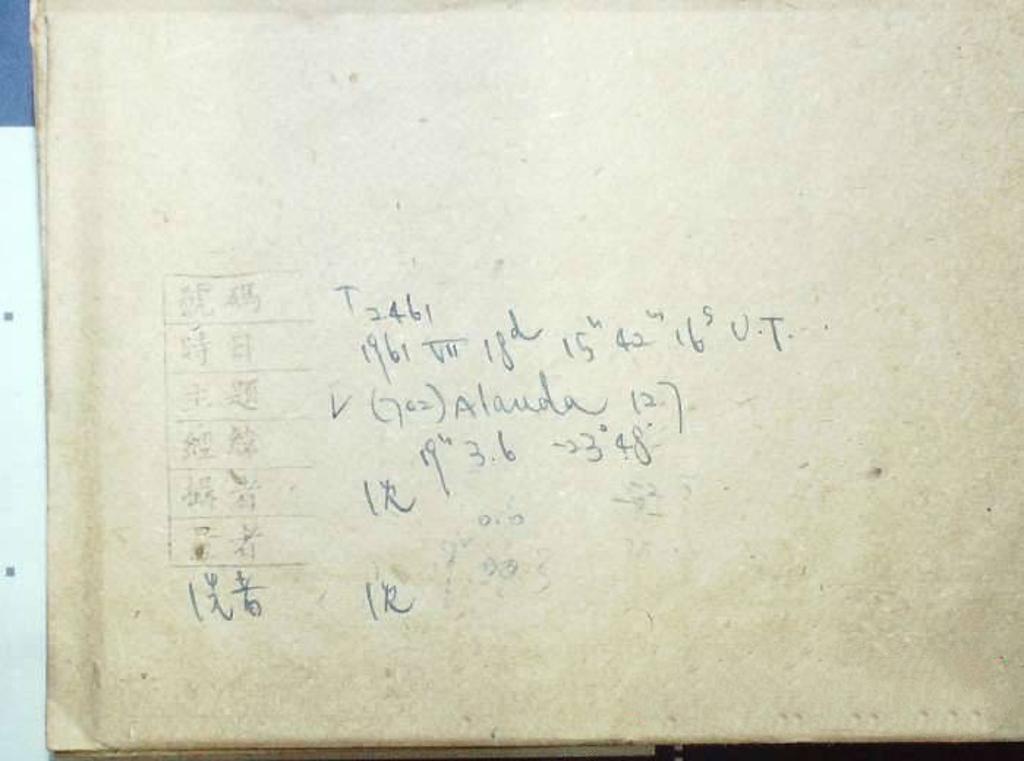 號碼 T2461
時日 1961 VII 18d 15h 42m 16s U.T.
主題 V (702) Alauda 12.7
經緯 19h 3.6 -23°48'
攝者
者
洗者